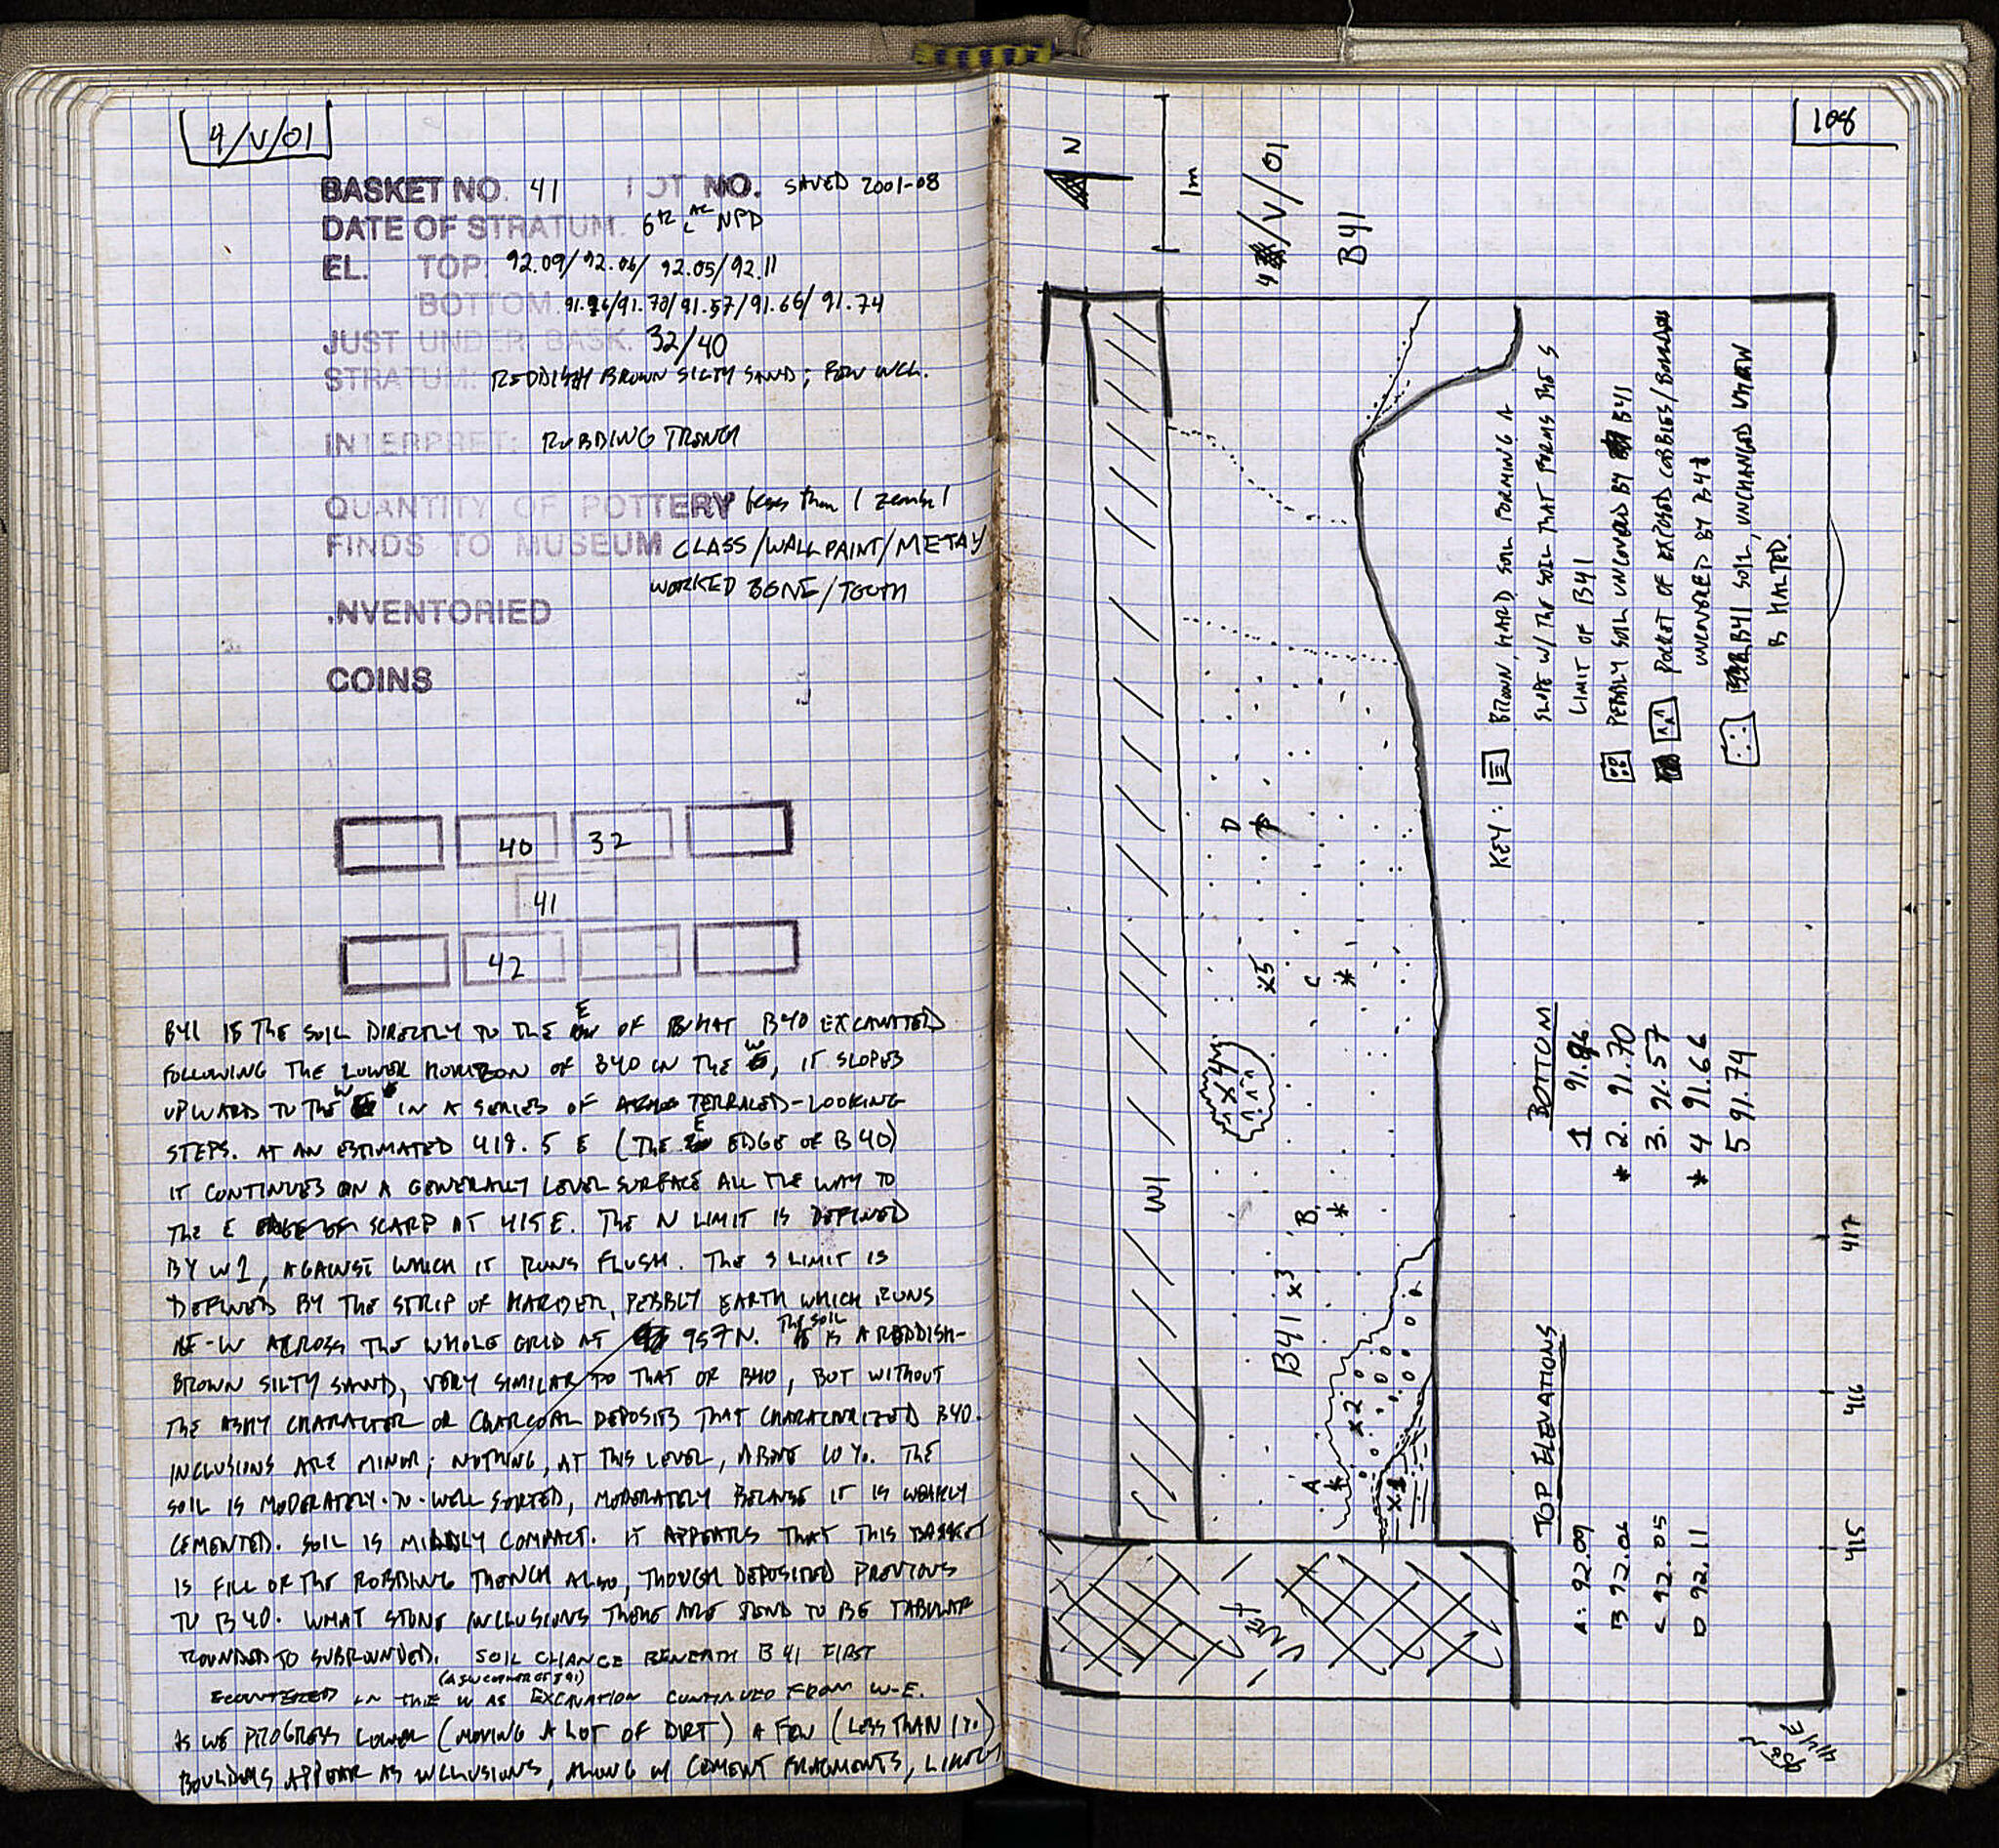 4/V/01
BASKET NO. 41 LOT NO. SAVED 2001-08
DATE OF STRATUM. 6th c AC NPD
EL. TOP. 92.09/92.06/92.05/92.11
BOTTOM. 91.86/91.70/91.57/91.66/91.74
JUST UNDER BASK. 32/40
STRATUM: REDDISH BROWN SILTY SAND; FEW INCL.
INTERPRET: ROBBING TRENCH
QUANTITY OF POTTERY less than 1 zembil
FINDS TO MUSEUM GLASS/WALL PAINT/METAL/
WORKED BONE/TOOTH
.NVENTORIED
COINS
40 32
41
42
B41 IS THE SOIL DIRECTLY TO THE E OF WHAT B40 EXCAVATED
FOLLOWING THE LOWER HORIZON OF B40 IN THE W, IT SLOPES
UPWARD TO THE W IN A SERIES OF TERRACED-LOOKING
STEPS. AT AN ESTIMATED 419.5 E (THE E EDGE OF B40)
IT CONTINUES ON A GENERALLY LEVEL SURFACE ALL THE WAY TO
THE E SCARP AT 415 E. THE N LIMIT IS DEFINED
BY W1, AGAINST WHICH IT RUNS FLUSH. THE S LIMIT IS
DEFINED BY THE STRIP OF HARDER, PEBBLY EARTH WHICH RUNS
E-W ACROSS THE WHOLE GRID AT 957N. THE SOIL IS A REDDISH-
BROWN SILTY SAND, VERY SIMILAR TO THAT OF B40, BUT WITHOUT
THE ASHY CHARACTER OR CHARCOAL DEPOSITS THAT CHARACTERIZED B40.
INCLUSIONS ARE MINOR; NOTHING, AT THIS LEVEL, ABOVE 10%. THE
SOIL IS MODERATELY-TO-WELL SORTED, MODERATELY BECAUSE IT IS WEAKLY
CEMENTED. SOIL IS MILDLY COMPACT. IT APPEARS THAT THIS BASKET
IS FILL OF THE ROBBING TRENCH ALSO, THOUGH DEPOSITED PREVIOUS
TO B40. WHAT STONE INCLUSIONS THERE ARE TEND TO BE TABULAR
ROUNDED TO SUBROUNDED. SOIL CHANGE BENEATH B41 FIRST
ECOUNTERED IN THE W AS EXCAVATION CONTINUED FROM W-E.
AS WE PROGRESS LOWER (MOVING A LOT OF DIRT) A FEW (LESS THAN 1%)
BOULDERS APPEAR AS INCLUSIONS, ALONG W/ CEMENT FRAGMENTS, LIKELY
108
N
1m
4/V/01
B41
KEY:
BROWN, HARD SOIL FORMING A
SLOPE W/ THE SOIL THAT FORMS THE S
LIMIT OF B41
PEBBLY SOIL UNCOVERED BY B41
POCKET OF EXPOSED COBBLES/BOULDERS
UNCOVERED BY B41
B41 SOIL, UNCHANGED WHEN
B HALTED.
W1
D
x5
C
x4
B
B41 x3
x2
A
x1
BOTTOM
1 91.86
* 2. 91.70
3. 91.57
* 4 91.66
5 91.74
TOP ELEVATIONS
A: 92.09
B 92.06
C 92.05
D 92.11
417
416
415
UNEX